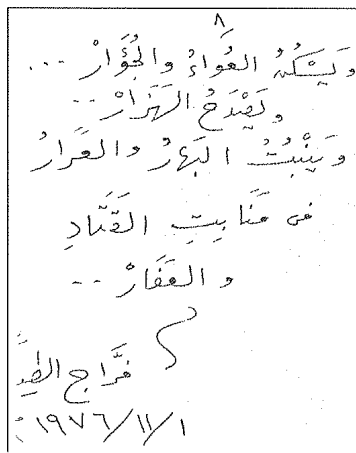 ٨
ويَسْكُنُ العُواءُ والجُؤَارْ ...
ويَصْدَحُ الهَزَارْ ..
ويَنْبُتُ البَهارُ والعَرارُ
فى مَنَابِتِ القَتَادِ
والقَفَارْ ..
فرَّاج الطيِّ
١٩٧٦/١١/١